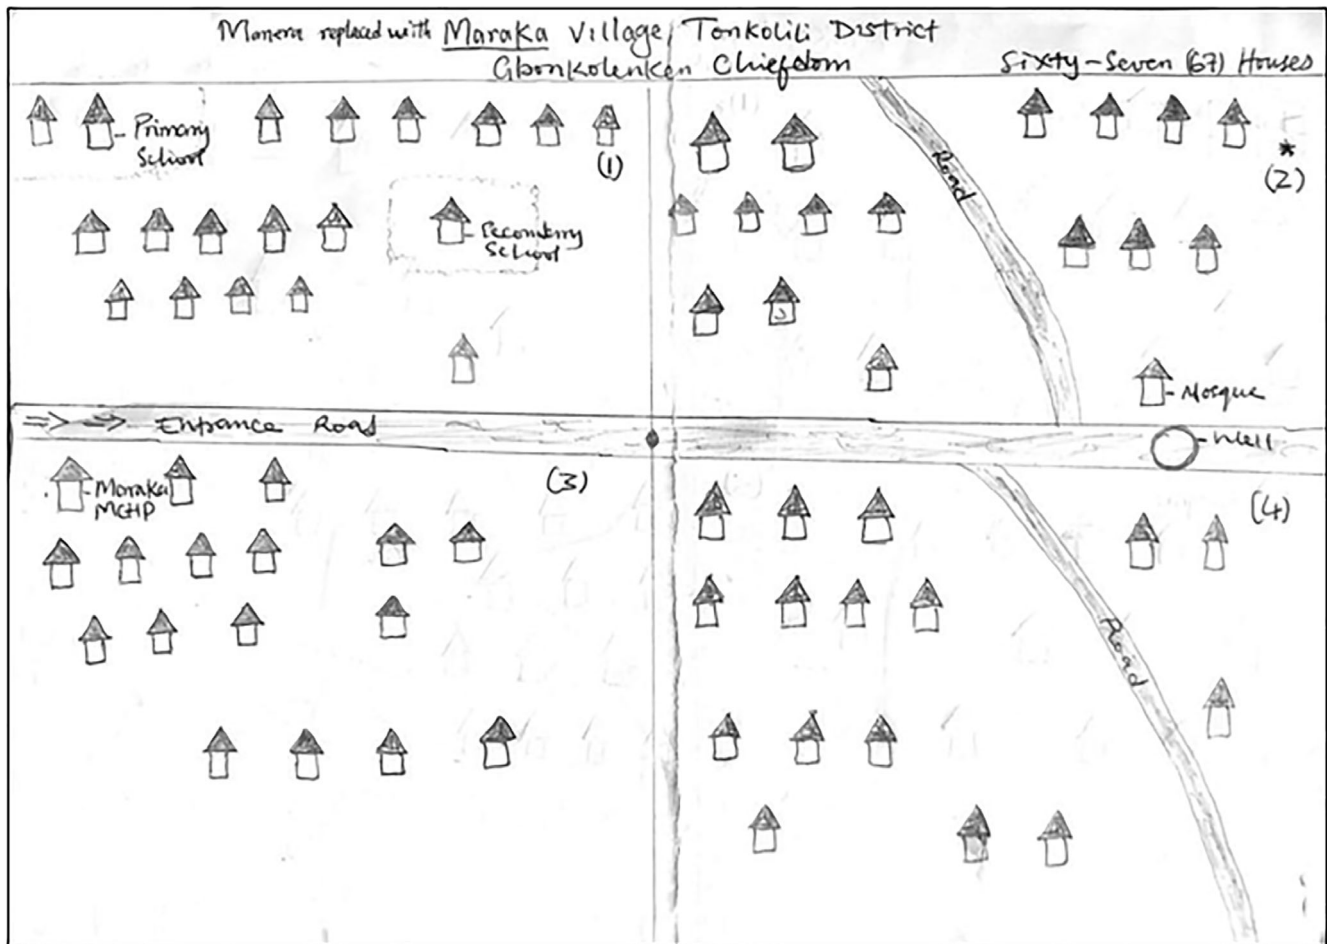 Manera replaced with Maraka Village, Tonkolili District
Gbonkolenken Chiefdom
Sixty-Seven (67) Houses
Primary
School
(1)
Road
*
(2)
Secondary
School
Mosque
Entrance Road
Well
Maraka
MCHP
(3)
(4)
Road